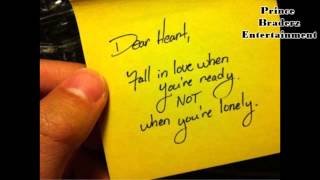 Prince
Braderz
Entertainment
Dear Heart,
Fall in love when
you're ready.
NOT
when you're lonely.